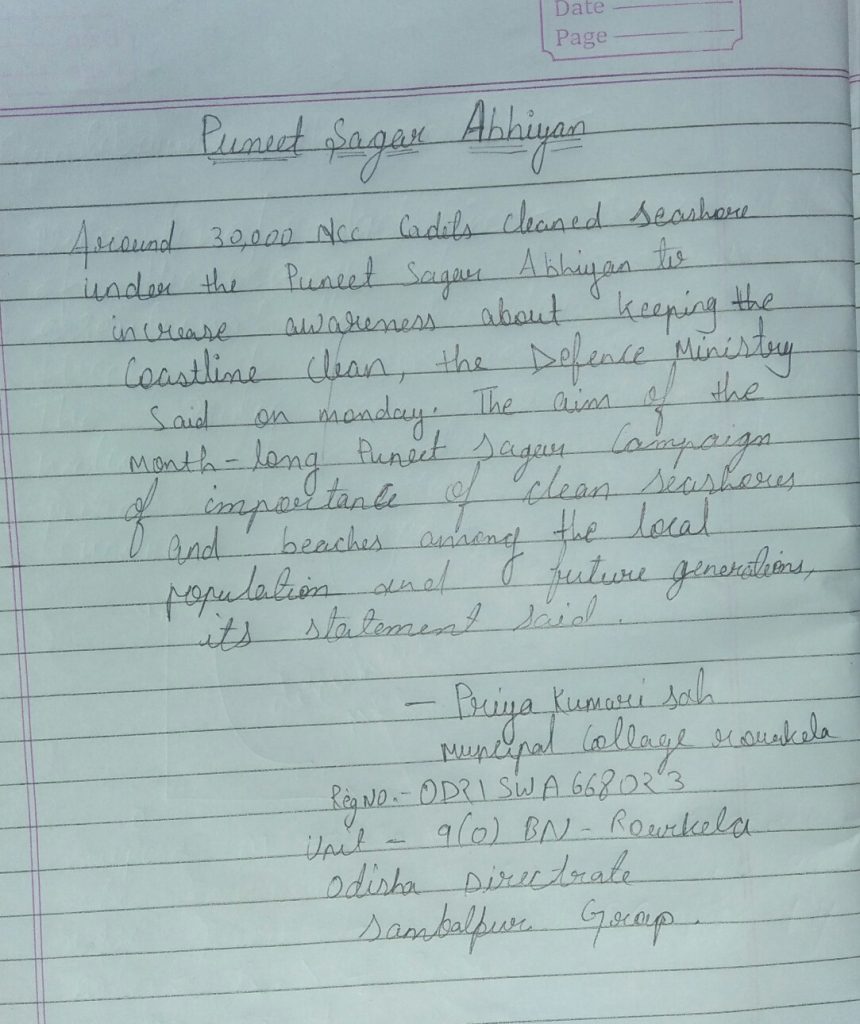 Date
Page
Puneet Sagar Abhiyan
Around 30,000 Ncc Cadets cleaned seashore
under the Puneet Sagar Abhiyan to
increase awareness about keeping the
Coastline clean, the Defence Ministry
Said on monday. The aim of the
month-long Puneet Sagar Campaign
of importance of clean seashores
and beaches among the local
population and future generations,
its statement said.
- Priya Kumari sah
Muncipal Collage rourkela
Reg No.- OD21SWA668023
Unit - 9(O) BN - Rourkela
Odisha Directrate
Sambalpur Group.